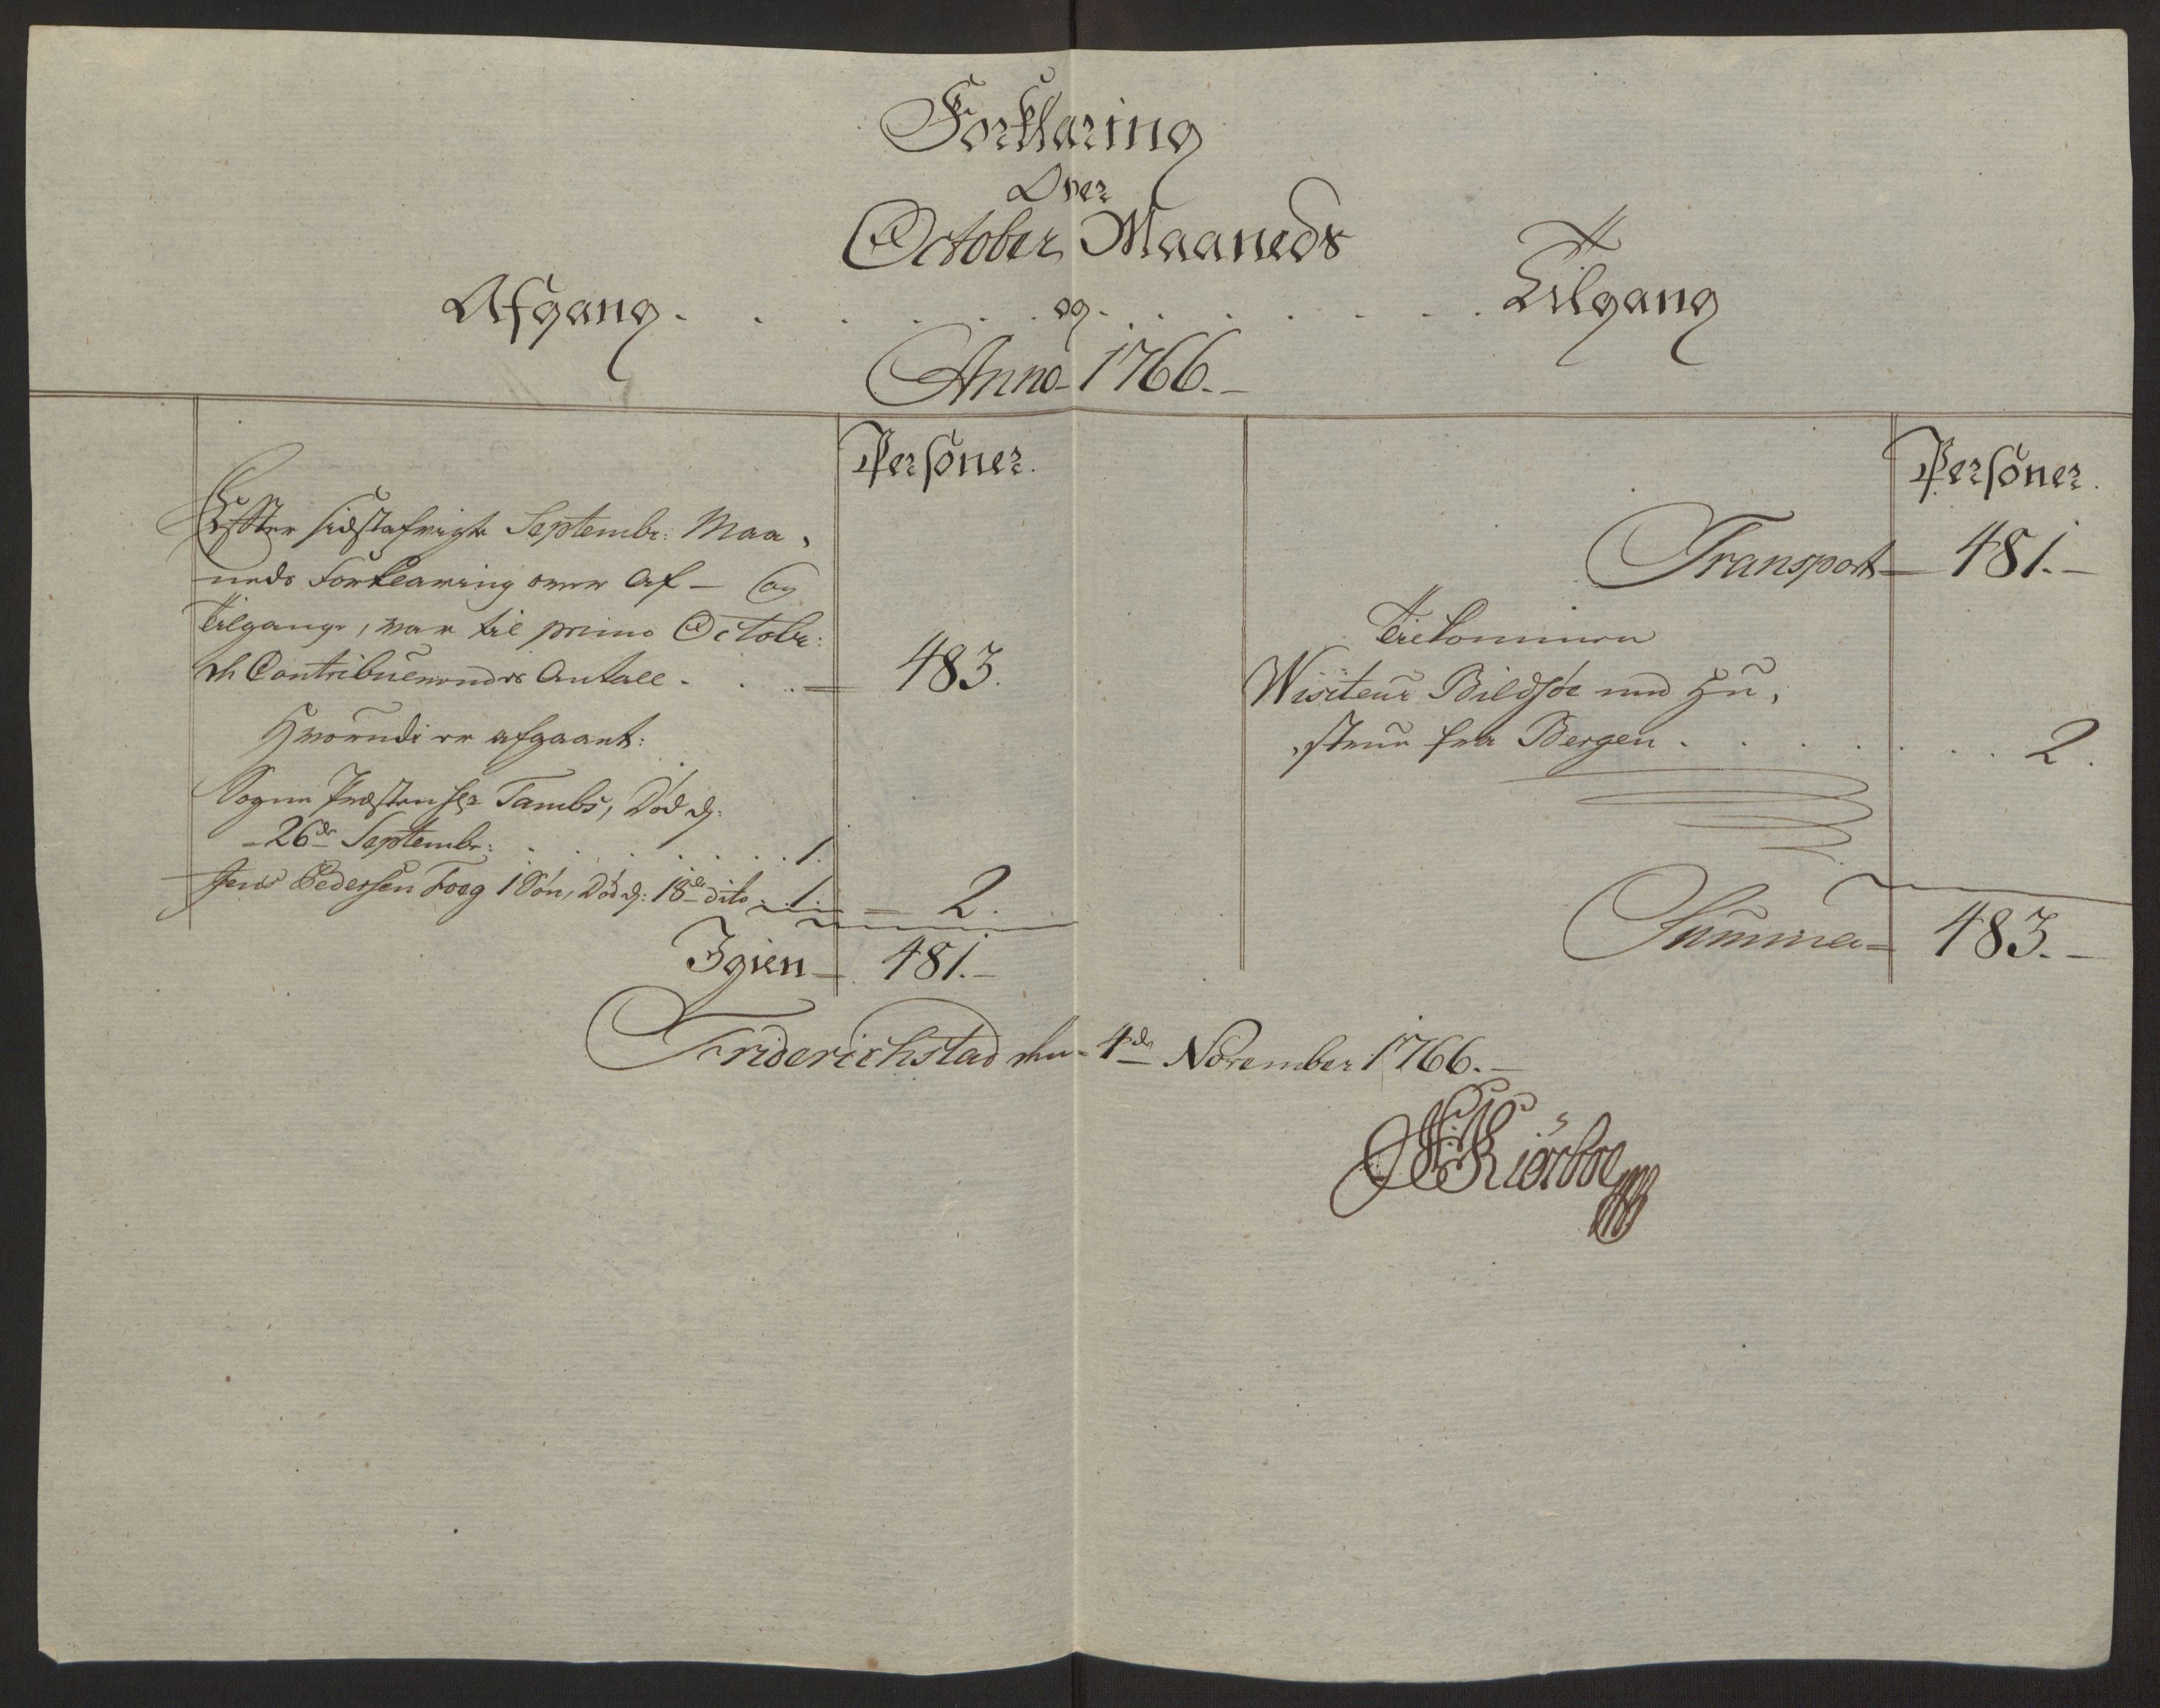 Forklaring
Over
October Maaneds
Afgang. . . . . . og. . . . . . Tilgang
Anno 1766.
Personer.
Efter sidstafvigte Septembr: Maa,
neds Forklaring over Af- og
Tilgange, var til primo Octobr:
de Contribuerendes Antall . . . 483.
Hvorudi er afgaaet:
Sogne Præsten Hr Tambs, Død d:
26de Septembr: . . . . . 1.
Jens Pedersen Foeg 1 Søn, Død d: 18de dito . 1. 2.
Igien 481.
Personer.
Transport 481.
Tilkommen
Visiteur Bildsøe med Hu,
,strue fra Bergen . . . . . . 2.
Summa 483.
Friderichstad den 4de November 1766.
Kiørboe